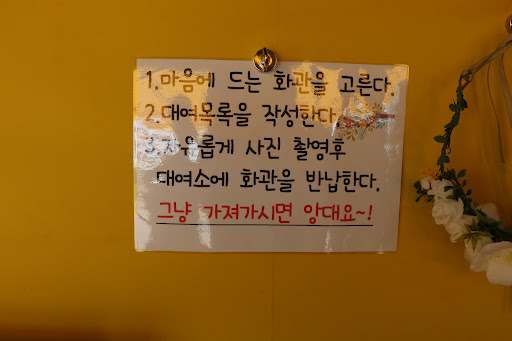 1.마음에 드는 화관을 고른다.
2.대여목록을 작성한다.
3.자유롭게 사진 촬영후
대여소에 화관을 반납한다.
그냥 가져가시면 앙대요~!